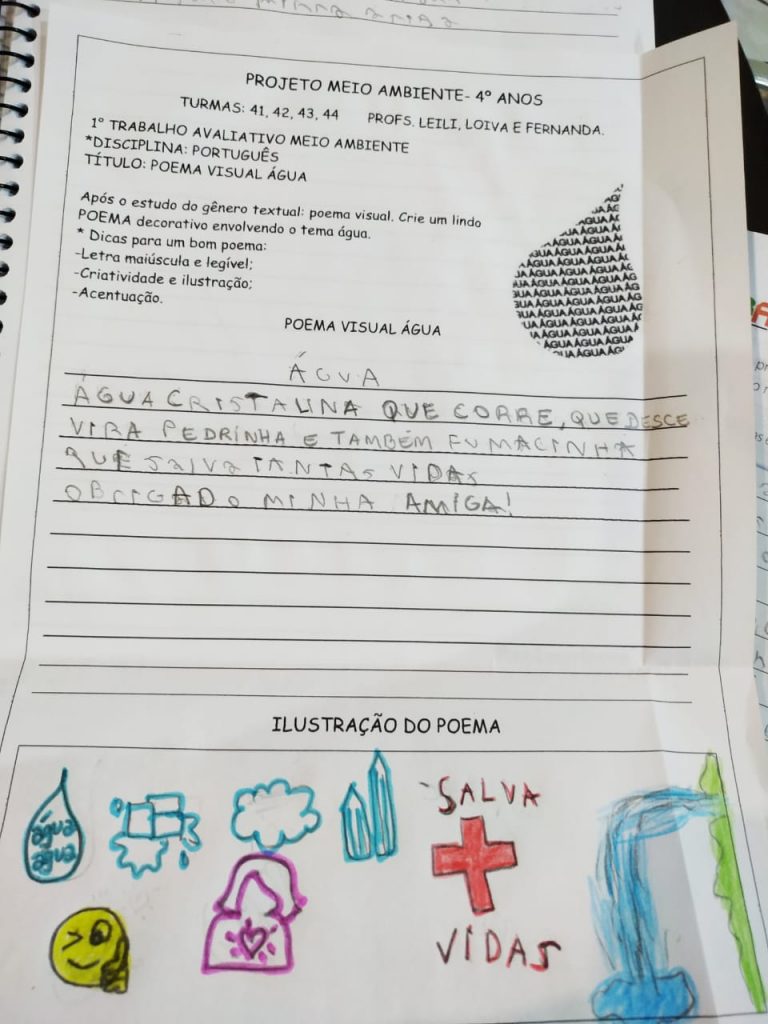 PROJETO MEIO AMBIENTE- 4º ANOS
TURMAS: 41, 42, 43, 44 PROFS. LEILI, LOIVA E FERNANDA.
1º TRABALHO AVALIATIVO MEIO AMBIENTE
*DISCIPLINA: PORTUGUÊS
TÍTULO: POEMA VISUAL ÁGUA
Após o estudo do gênero textual: poema visual. Crie um lindo
POEMA decorativo envolvendo o tema água.
* Dicas para um bom poema:
-Letra maiúscula e legível;
-Criatividade e ilustração;
-Acentuação.
POEMA VISUAL ÁGUA
ÁGUA
ÁGUA CRISTALINA QUE CORRE, QUE DESCE
VIRA PEDRINHA E TAMBÉM FUMACINHA
QUE SALVA TANTAS VIDAS
OBRIGADO MINHA AMIGA!
ILUSTRAÇÃO DO POEMA
água
água
SALVA
VIDAS